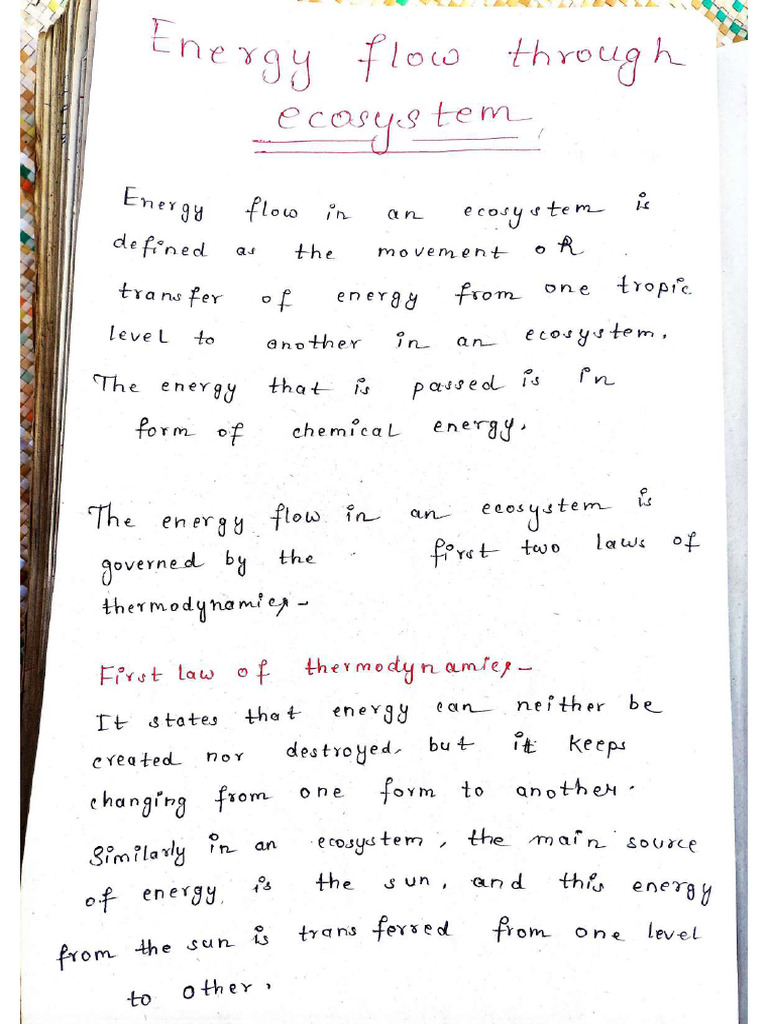 Energy flow through
ecosystem
Energy flow in an ecosystem is
defined as the movement OR
transfer of energy from one tropic
level to another in an ecosystem.
The energy that is passed is in
form of chemical energy.
The energy flow in an ecosystem is
governed by the first two laws of
thermodynamics -
First law of thermodynamics -
It states that energy can neither be
created nor destroyed, but it keeps
changing from one form to another.
Similarly in an ecosystem, the main source
of energy is the sun, and this energy
from the sun is transferred from one level
to other.